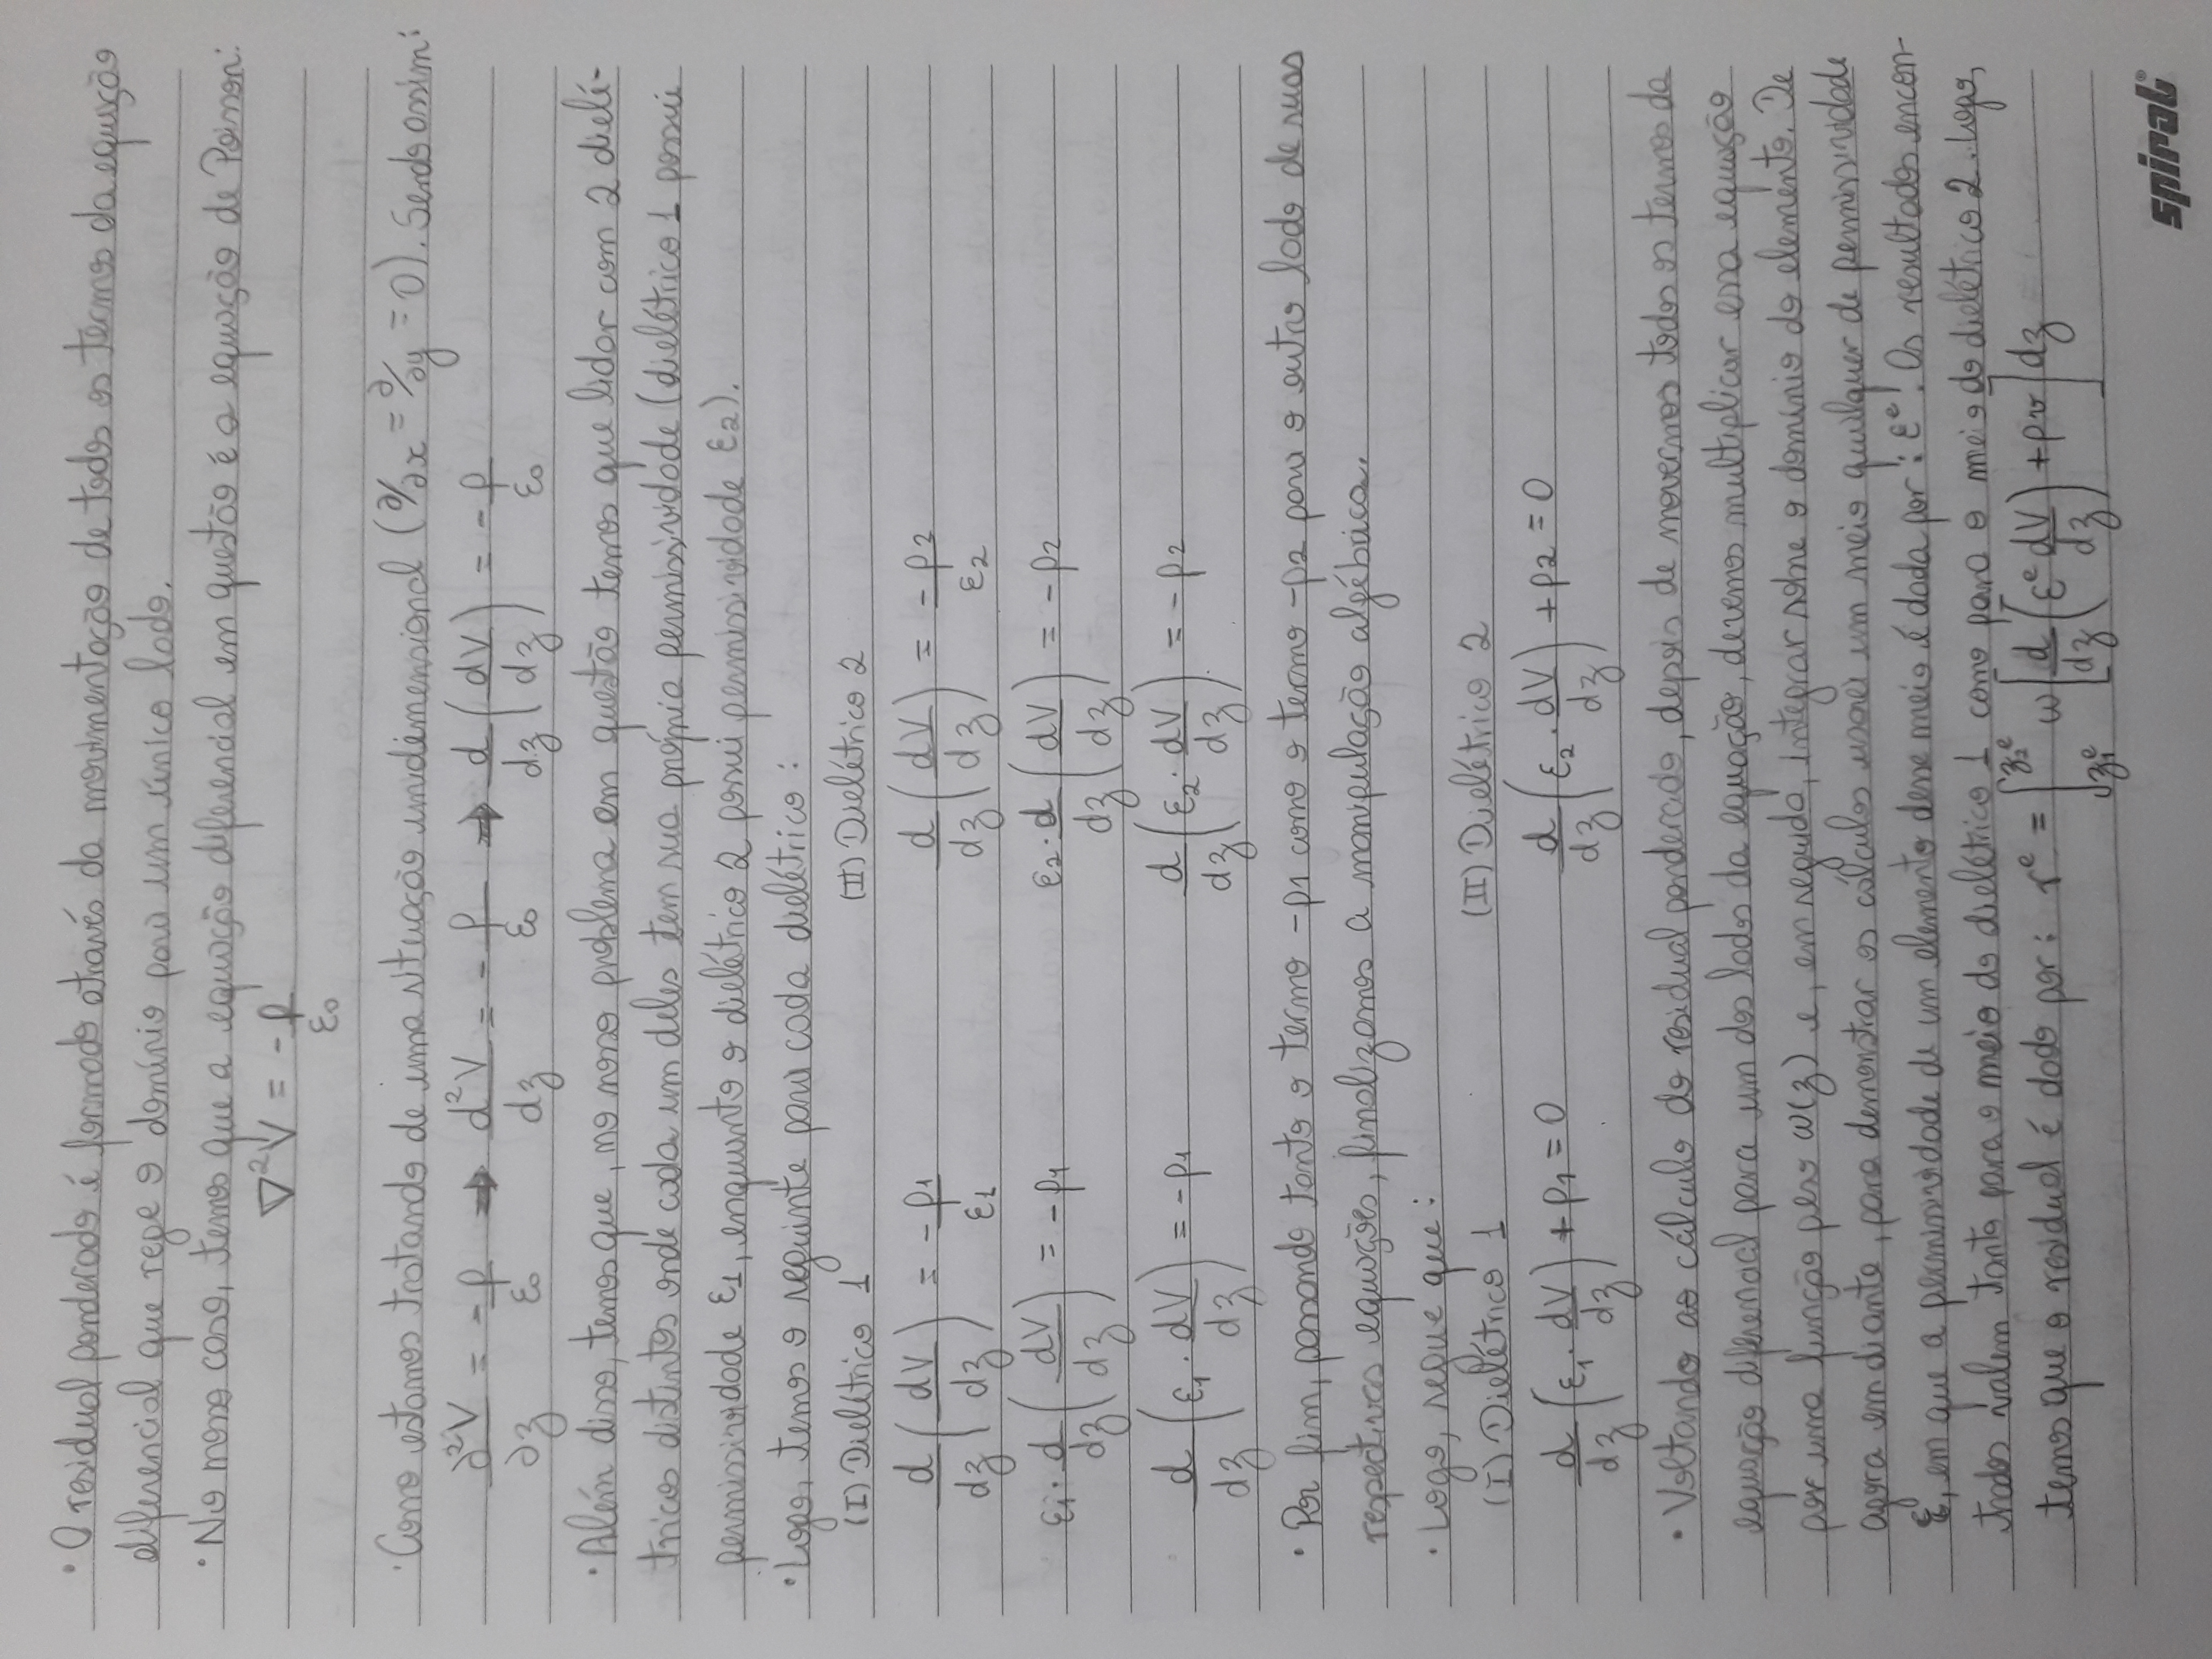 • O residual ponderado é formado através da movimentação de todos os termos da equação
diferencial que rege o domínio para um único lado.
• No nosso caso, temos que a equação diferencial em questão é a equação de Poisson:
∇²V = -ρ/ε₀
• Como estamos tratando de uma situação unidimensional (∂/∂x = ∂/∂y = 0). Sendo assim:
∂²V/∂z = -ρ/ε₀ → d²V/dz = -ρ/ε₀ → d/dz (dV/dz) = -ρ/ε₀
• Além disso, temos que, no nosso problema em questão temos que lidar com 2 dielé-
tricos distintos onde cada um deles tem sua própria permissividade (dielétrico 1 possui
permissividade ε1, enquanto o dielétrico 2 possui permissividade ε2).
• Logo, temos o seguinte para cada dielétrico:
(I) Dielétrico 1 (II) Dielétrico 2
d/dz (dV/dz) = -ρ1/ε1 d/dz (dV/dz) = -ρ2/ε2
ε1 · d/dz (dV/dz) = -ρ1 ε2 · d/dz (dV/dz) = -ρ2
d/dz (ε1 · dV/dz) = -ρ1 d/dz (ε2 · dV/dz) = -ρ2
• Por fim, passando tanto o termo -ρ1 como o termo -ρ2 para o outro lado de suas
respectivas equações, finalizamos a manipulação algébrica.
• Logo, segue que:
(I) Dielétrico 1 (II) Dielétrico 2
d/dz (ε1 · dV/dz) + ρ1 = 0 d/dz (ε2 · dV/dz) + ρ2 = 0
• Voltando ao cálculo do residual ponderado, depois de movermos todos os termos da
equação diferencial para um dos lados da equação, devemos multiplicar essa equação
por uma função peso ω(z) e, em seguida, integrar sobre o domínio do elemento. De
agora em diante, para demonstrar os cálculos usarei um meio qualquer de permissividade
ε, em que a permissividade de um elemento desse meio é dada por: εᵉ. Os resultados encon-
trados valem tanto para o meio do dielétrico 1 como para o meio do dielétrico 2. Logo,
temos que o residual é dado por: rᵉ = ∫_{z₁ᵉ}^{z₂ᵉ} ω [d/dz (εᵉ dV/dz) + ρv] dz
spiral®